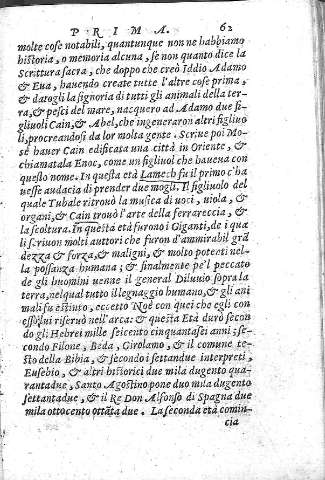 PRIMA. 62
molte cose notabili, quantunque non ne habbiamo
historia, o memoria alcuna, se non quanto dice la
Scrittura sacra, che doppo che creò Iddio Adamo
& Eua, hauendo create tutte l'altre cose prima,
& datogli la signoria di tutti gli animali della ter-
ra, & pesci del mare, nacquero ad Adamo due fi-
gliuoli Cain, & Abel, che ingeneraron altri figliuo
li, procreandosi da lor molta gente. Scriue poi Mo-
sè hauer Cain edificata una città in Oriente, &
chiamatala Enoc, come un figliuol che haueua con
questo nome. In questa età Lamech fu il primo c'ha
uesse audacia di prender due mogli. Il figliuolo del
quale Tubale ritrouò la musica di uoci, uiola, &
organi, & Cain trouò l'arte della ferrareccia, &
la scoltura. In questa età furono i Giganti, de i qua
li scriuon molti auttori che furon d'ammirabil grā
dezza & forza, & maligni, & molto potenti nel-
la possanza humana; & finalmente pe'l peccato
de gli huomini uenne il general Diluuio sopra la
terra, nel qual tutto il legnaggio humano, & gli ani
mali fu estinto, eccetto Noè con quei che egli con
esso lui riseruò nell'arca: & questa Età durò secon
do gli Hebrei mille seicento cinquantasei anni; se-
condo Filone, Beda, Girolamo, & il comune te-
sto della Bibia, & secondo i settandue interpreti,
Eusebio, & altri historici due mila dugento qua-
rantadue, Santo Agostino pone duo mila dugento
settantadue, & il Re Don Alfonso di Spagna due
mila ottocento ottāta due. La seconda età comin-
cia